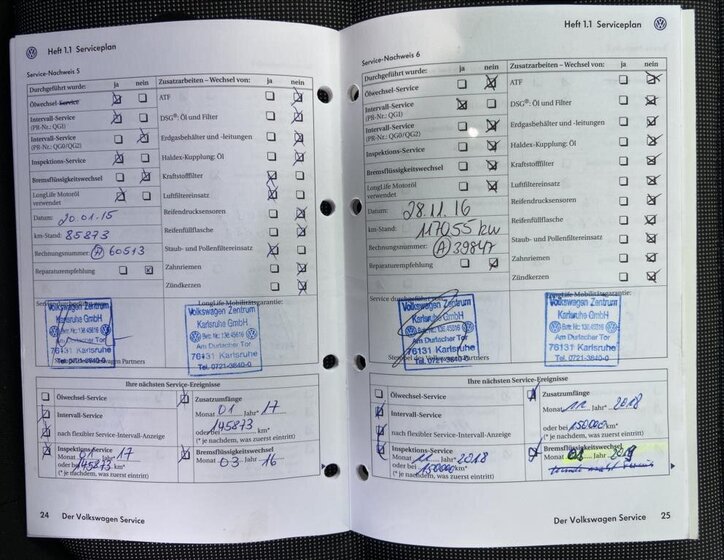 Heft 1.1 Serviceplan
Service-Nachweis 5
Durchgeführt wurde: ja nein
Ölwechsel-Service
Intervall-Service
(PR-Nr.: QG1)
Intervall-Service
(PR-Nr.: QG0/QG2)
Inspektions-Service
Bremsflüssigkeitswechsel
LongLife Motoröl
verwendet
Datum: 20.01.15
km-Stand: 85873
Rechnungsnummer: A 60513
Reparaturempfehlung
Zusatzarbeiten – Wechsel von: ja nein
ATF
DSG®: Öl und Filter
Erdgasbehälter und -leitungen
Haldex-Kupplung: Öl
Kraftstofffilter
Luftfiltereinsatz
Reifendrucksensoren
Reifenfüllflasche
Staub- und Pollenfiltereinsatz
Zahnriemen
Zündkerzen
LongLife Mobilitätsgarantie:
Volkswagen Zentrum
Karlsruhe GmbH
Betr. Nr.: 136 45816
Am Durlacher Tor
76131 Karlsruhe
Tel. 0721-3840-0
Volkswagen Zentrum
Karlsruhe GmbH
Betr. Nr.: 136 45816
Am Durlacher Tor
76131 Karlsruhe
Tel. 0721-3840-0
Partners
Ihre nächsten Service-Ereignisse
Ölwechsel-Service
Intervall-Service
nach flexibler Service-Intervall-Anzeige
Inspektions-Service
Monat 01 Jahr 17
oder bei 145873 km*
(* je nachdem, was zuerst eintritt)
Zusatzumfänge
Monat 01 Jahr* 17
oder bei 145873 km*
(* je nachdem, was zuerst eintritt)
Bremsflüssigkeitswechsel
Monat 03 Jahr 16
24 Der Volkswagen Service
Heft 1.1 Serviceplan
Service-Nachweis 6
Durchgeführt wurde: ja nein
Ölwechsel-Service
Intervall-Service
(PR-Nr.: QG1)
Intervall-Service
(PR-Nr.: QG0/QG2)
Inspektions-Service
Bremsflüssigkeitswechsel
LongLife Motoröl
verwendet
Datum: 28.11.16
km-Stand: 117055 km
Rechnungsnummer: A 39847
Reparaturempfehlung
Zusatzarbeiten – Wechsel von: ja nein
ATF
DSG®: Öl und Filter
Erdgasbehälter und -leitungen
Haldex-Kupplung: Öl
Kraftstofffilter
Luftfiltereinsatz
Reifendrucksensoren
Reifenfüllflasche
Staub- und Pollenfiltereinsatz
Zahnriemen
Zündkerzen
Service durchgeführt
LongLife Mobilitätsgarantie:
Volkswagen Zentrum
Karlsruhe GmbH
Betr. Nr.: 136 45816
Am Durlacher Tor
76131 Karlsruhe
Tel. 0721-3840-0
Volkswagen Zentrum
Karlsruhe GmbH
Betr. Nr.: 136 45816
Am Durlacher Tor
76131 Karlsruhe
Tel. 0721-3840-0
Stempel des Volkswagen Partners
Ihre nächsten Service-Ereignisse
Ölwechsel-Service
Intervall-Service
nach flexibler Service-Intervall-Anzeige
Inspektions-Service
Monat 11 Jahr* 2018
oder bei 150000 km*
(* je nachdem, was zuerst eintritt)
Zusatzumfänge
Monat 11 Jahr* 2018
oder bei 150000 km*
(* je nachdem, was zuerst eintritt)
Bremsflüssigkeitswechsel
Monat 01 Jahr 2019
Der Volkswagen Service 25